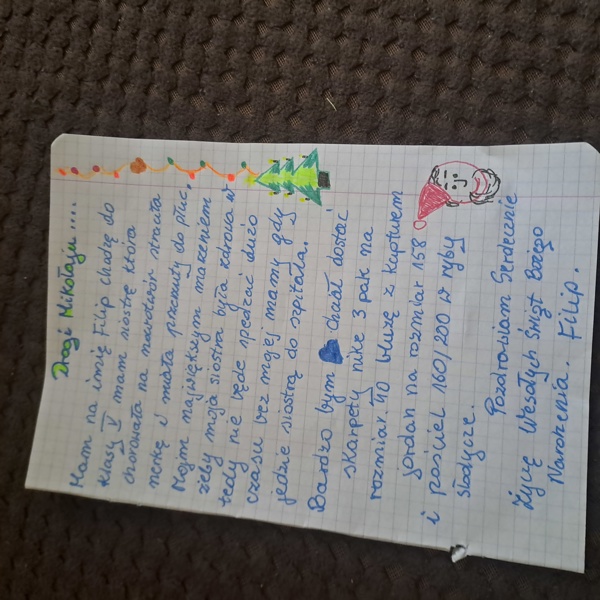 Drogi Mikołaju....
Mam na imię Filip chodzę do
klasy V mam siostrę która
chorowała na nowotwór straciła
nerkę i miała przezuty do płuc,
Mojm największym marzeniem
żeby moja siostra była zdrowa i
tedy nie będe spędzać dużo
czasu bez mojej mamy gdy
jedzie siostrą do szpitala.
Bardzo bym chciał dostać
skarpety nike 3 pak na
rozmiar 40 bluzę z kapturem
jordan na rozmiar 158
i pościel 160/200 w ryby
słodycze.
Pozdrowiam Serdecznie
życzę Wesołych Świąt Bożego
Narodzenia. Filip.